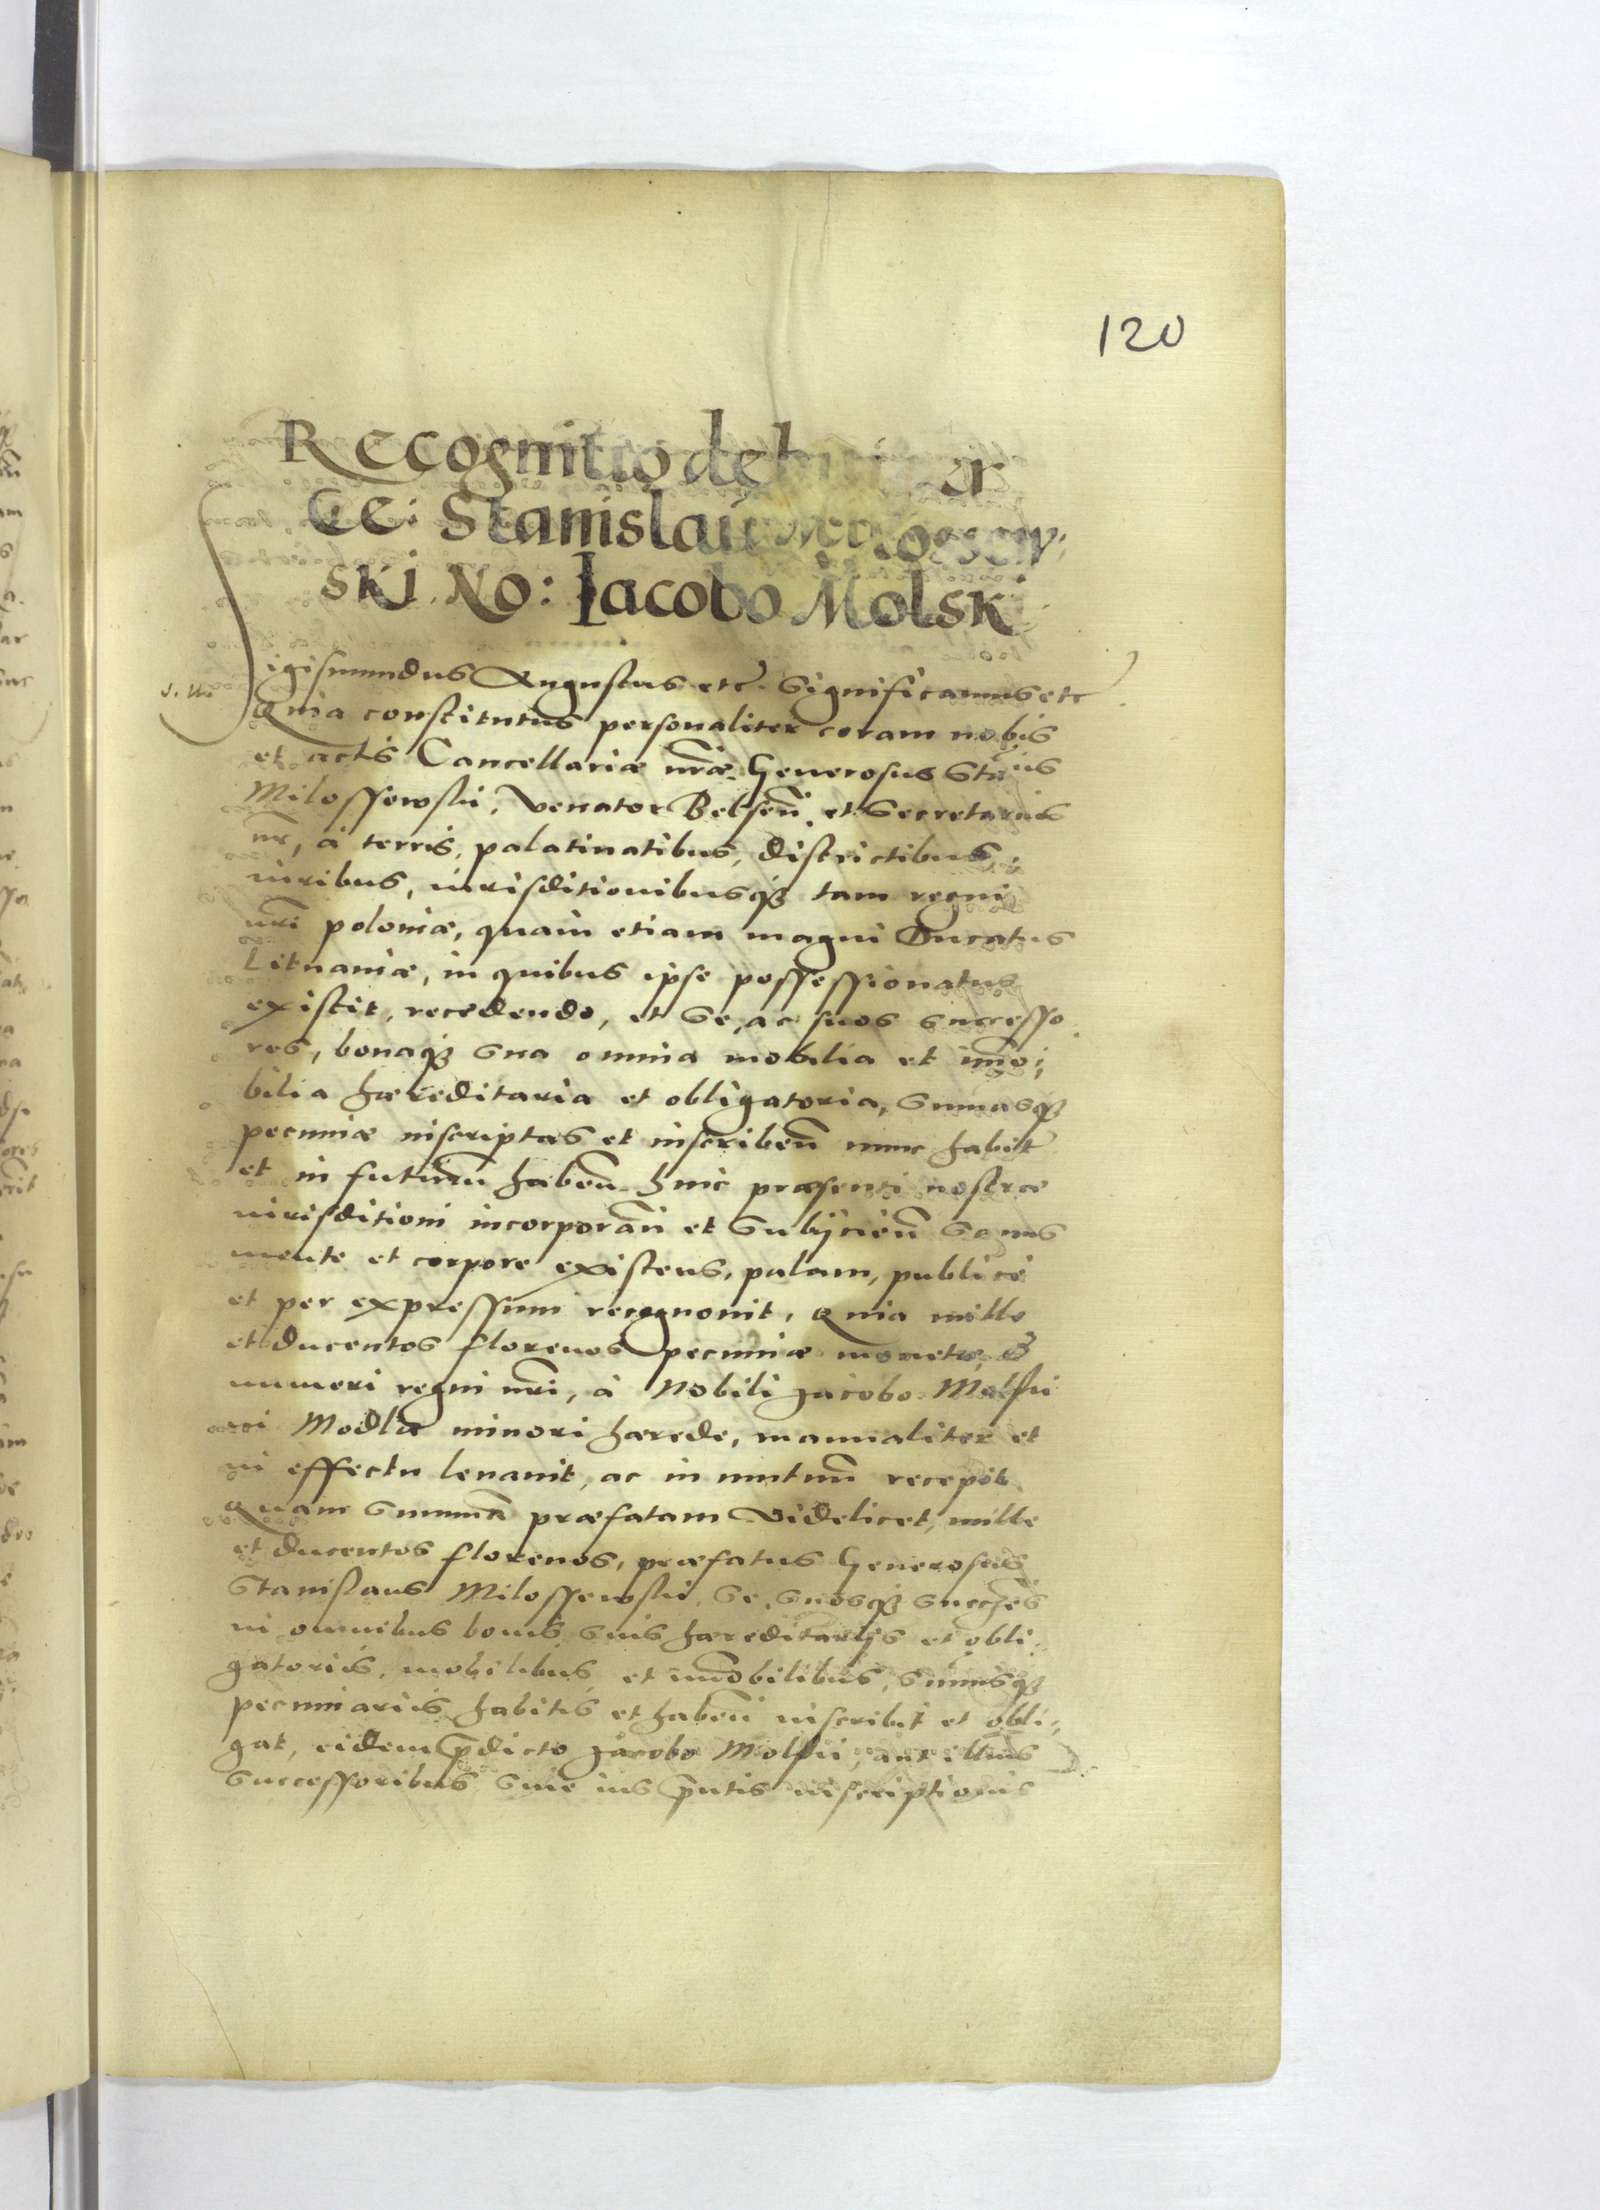 120
Recognitio debiti per
GE: Stanislaum Milossew:
ski. No: Iacobo Molski
Sigismundus Augustus etc. Significamus etc
Quia constitutus personaliter coram nobis
et actis Cancellariæ nr̃æ. Generosus
Milossewski, Venator Belseñ. et Secretarius
nr̃, à terris, palatinatibus, districtibus,
iuribus, iurisditionibusq3 tam regni
nr̃i poloniæ, quam etiam magni Ducatus
Lituaniæ, in quibus ipse possessionatus
existit, recedendo, et se, ac suos successo
res, bonaq3 sua omnia mobilia et im̃o,
bilia hæreditaria et obligatoria, sum̃asq3
pecuniæ inscriptas et inscribeñ nunc habit
et in futurũ habeñ huic præsenti nostræ
iurisditioni incorporañ et subijcieñ sanus
mente et corpore existens, palam, publicè
et per expressum recognovit, Quia mille
et ducentos florenos pecuniæ monetæ, &
numeri regni nr̃i, à Nobili Jacobo Molski
Modla minori hærede, manualiter et
in effectu levavit, ac in mutuũ recepit
Quam sum̃am præfatam videlicet, mille
et ducentos florenos, præfatus Generosus
Stanislaus Milossewski, se, suosq3 succeses
in omnibus bonis suis hæreditarijs et obli,
gatoriis, mobilibus et im̃obilibus, sum̃isq3
pecuniariis habitis et habeñ inscribit et obli,
gat, eidem p̃dicto Jacobo Molski, aut illius
successoribus sive ius p̃ntis inscriptionis